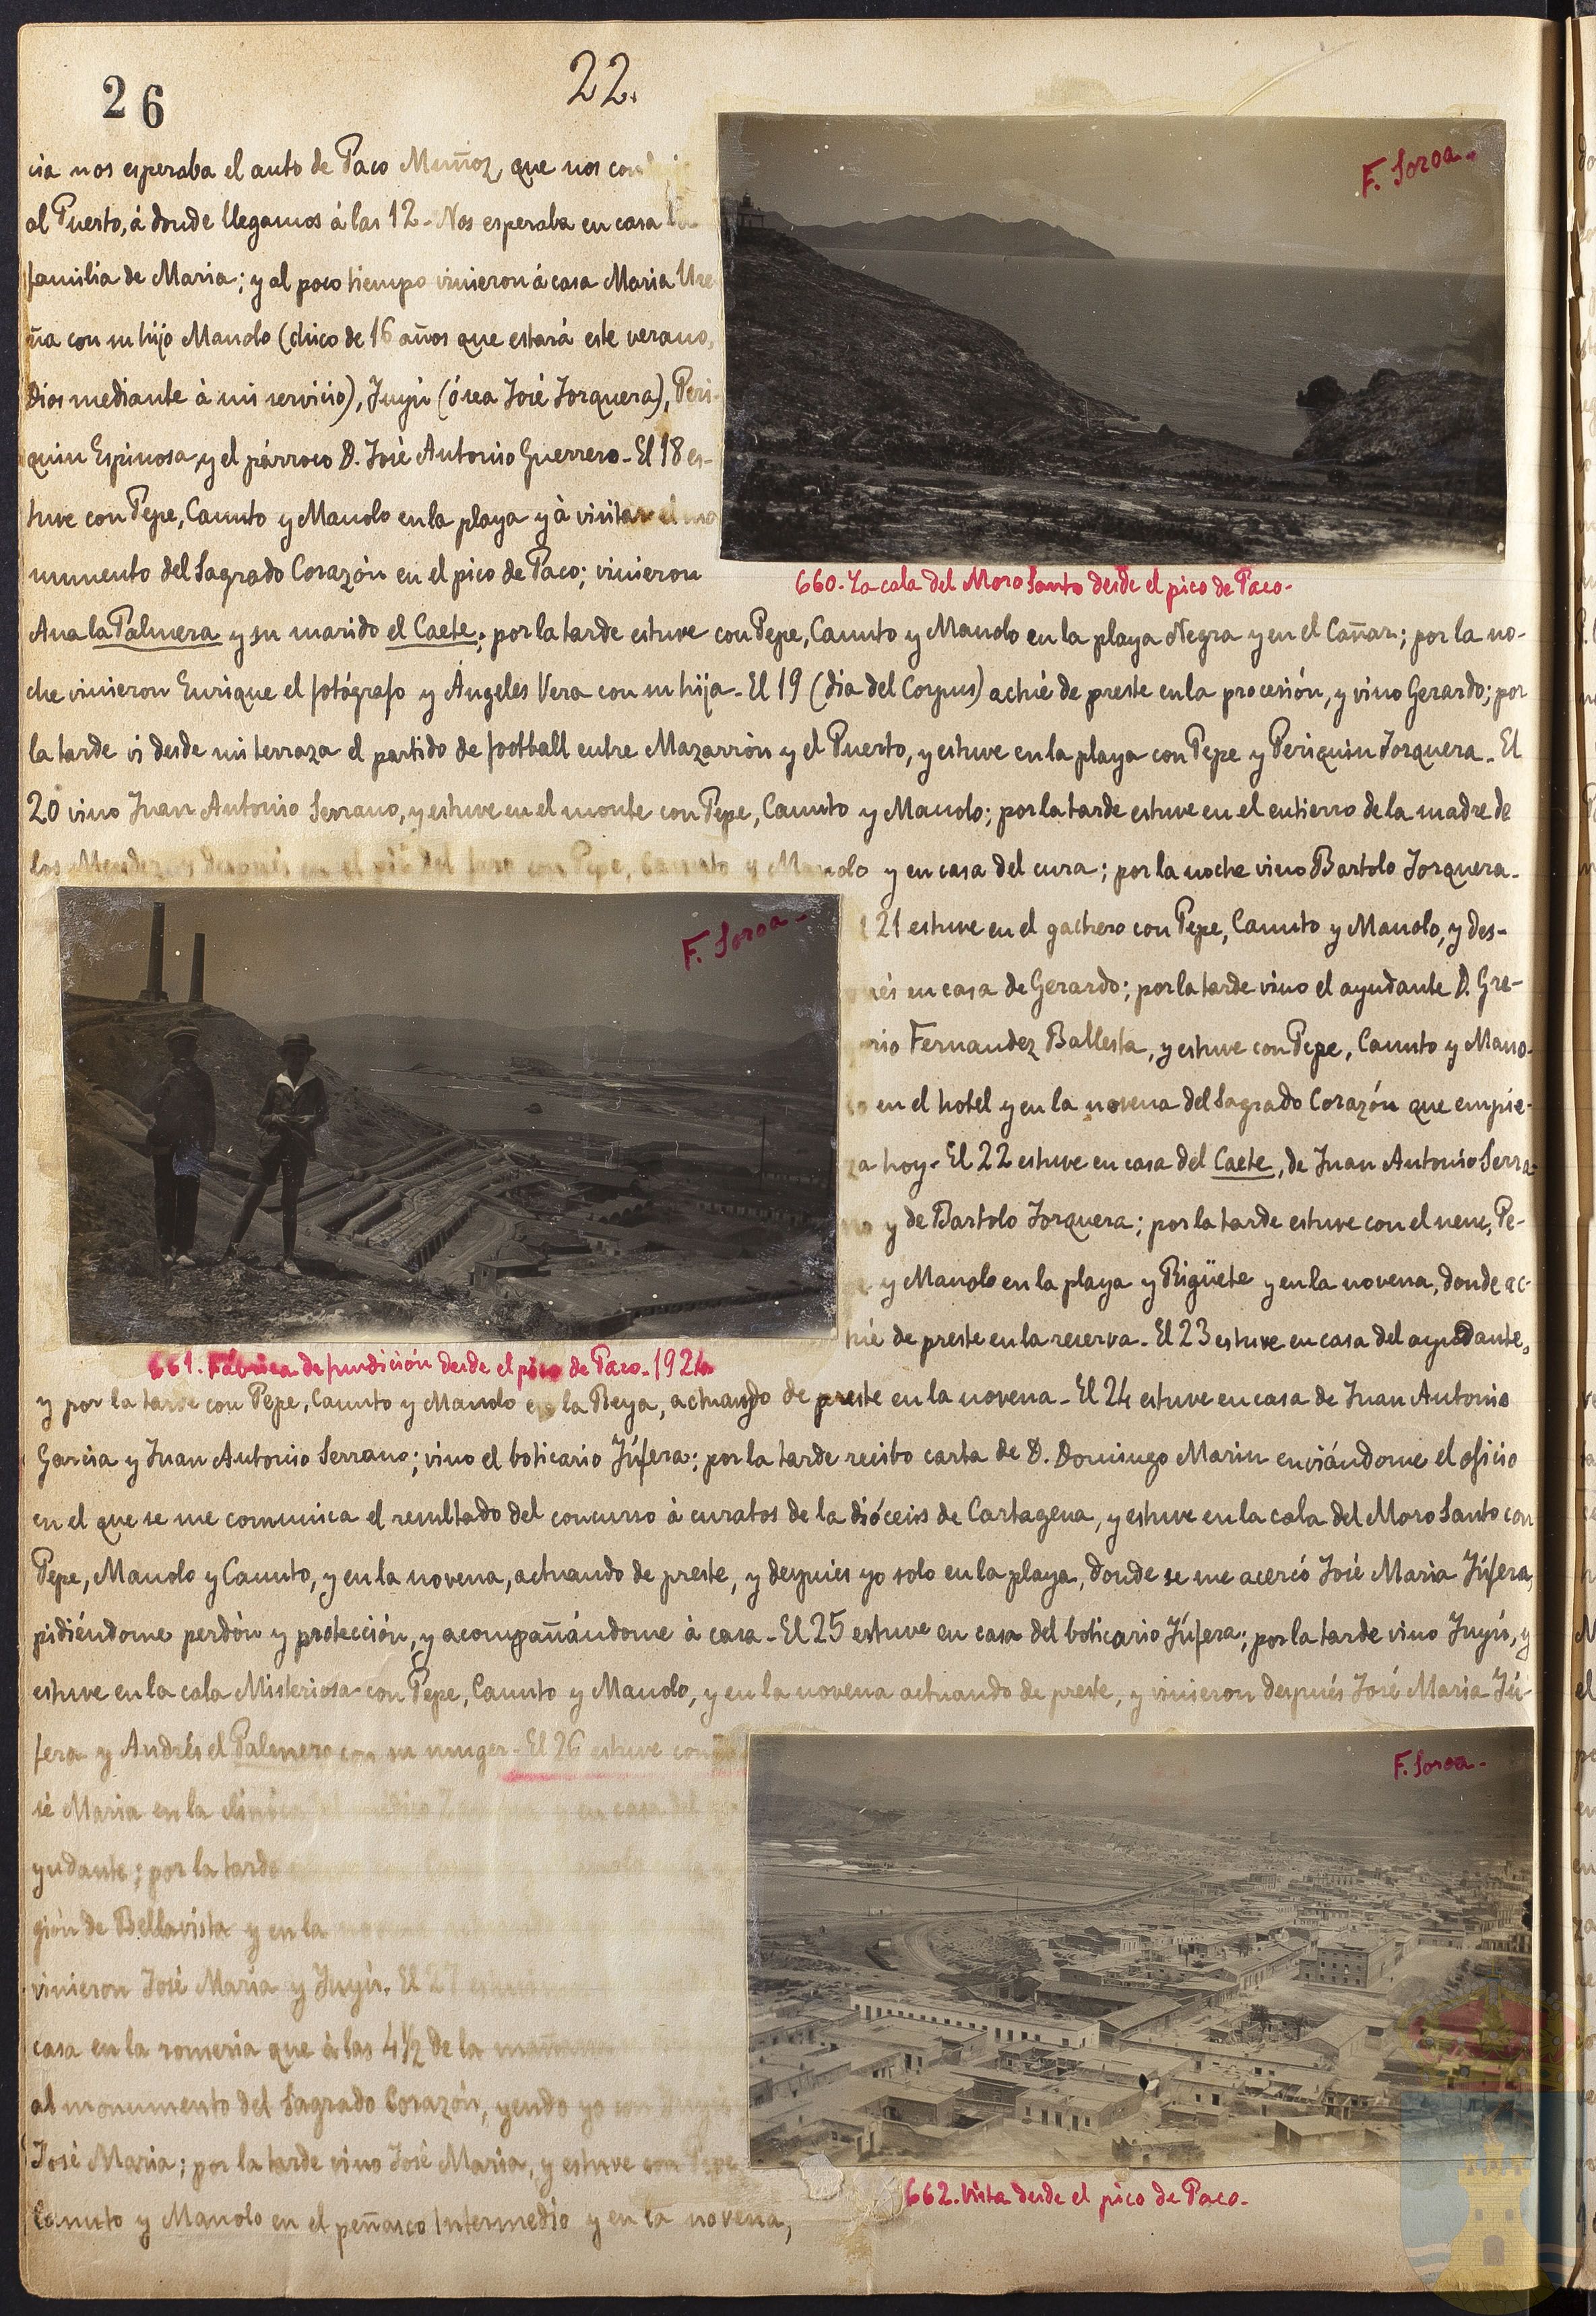 26
22.
cia nos esperaba el auto de Paco Muñoz, que nos
al Puerto, á donde llegamos á las 12 - Nos esperaba en casa la
familia de Maria; y al poco tiempo vinieron á casa Maria Ure-
ña con su hijo Manolo (chico de 16 años que estará este verano,
Dios mediante á mi servicio), Juyú (ósea José Jorquera), Peri-
quin Espinosa y el párroco D. José Antonio Guerrero - El 18 es-
tuve con Pepe, Canuto y Manolo en la playa y á visitar el mo
numento del Sagrado Corazón en el pico de Paco; vinieron
F. Soroa -
660 - La cala del Moro Santo desde el pico de Paco -
Ana la Palmera y su marido el Caete; por la tarde estuve con Pepe, Canuto y Manolo en la playa Negra y en el Cañar; por la no-
che vinieron Enrique el fotógrafo y Ángeles Vera con su hija - El 19 (dia del Corpus) actué de preste en la procesión, y vino Gerardo; por
la tarde vi desde mi terraza el partido de football entre Mazarrón y el Puerto, y estuve en la playa con Pepe y Periquin Jorquera - El
20 vino Juan Antonio Serrano, y estuve en el monte con Pepe, Canuto y Manolo; por la tarde estuve en el entierro de la madre de
los Mendez, y después en el del faro con Pepe, Canuto y Manolo y en casa del cura; por la noche vino Bartolo Jorquera -
21 estuve en el gachero con Pepe, Canuto y Manolo, y des-
ués en casa de Gerardo; por la tarde vino el ayudante D. Gre-
orio Fernandez Ballesta, y estuve con Pepe, Canuto y Mano-
lo en el hotel y en la novena del Sagrado Corazón que empie-
za hoy - El 22 estuve en casa del Caete, de Juan Antonio Serra-
no y de Bartolo Jorquera; por la tarde estuve con el nene, Pe-
pe y Manolo en la playa y Rigüete y en la novena, donde ac-
tué de preste en la reserva - El 23 estuve en casa del ayudante,
F. Soroa -
661 - Fábrica de fundición desde el pico de Paco - 1924
y por la tarde con Pepe, Canuto y Manolo en la Reya, actuando de preste en la novena - El 24 estuve en casa de Juan Antonio
Garcia y Juan Antonio Serrano; vino el boticario Júfera; por la tarde recibo carta de D. Domingo Marin enviándome el oficio
en el que se me comunica el resultado del concurso á curatos de la diócesis de Cartagena, y estuve en la cala del Moro Santo con
Pepe, Manolo y Canuto, y en la novena, actuando de preste, y después yo solo en la playa, donde se me acercó José Maria Júfera,
pidiéndome perdón y protección, y acompañándome á casa - El 25 estuve en casa del boticario Júfera; por la tarde vino Juyú, y
estuve en la cala Misteriosa con Pepe, Canuto y Manolo, y en la novena actuando de preste, y vinieron después José Maria Jú-
fera y Andrés el Palmero con su muger - El 26 estuve con
sé Maria en la clinica y en casa del
yudante; por la tarde
gión de Bellavista y en la
vinieron José Maria y Juyú. El 27
casa en la romeria que á las 4 ½ de la mañana
al monumento del Sagrado Corazón, yendo yo con
José Maria; por la tarde vino José Maria, y estuve con Pepe
Canuto y Manolo en el peñasco Intermedio y en la novena,
F. Soroa -
662 - Vista desde el pico de Paco -